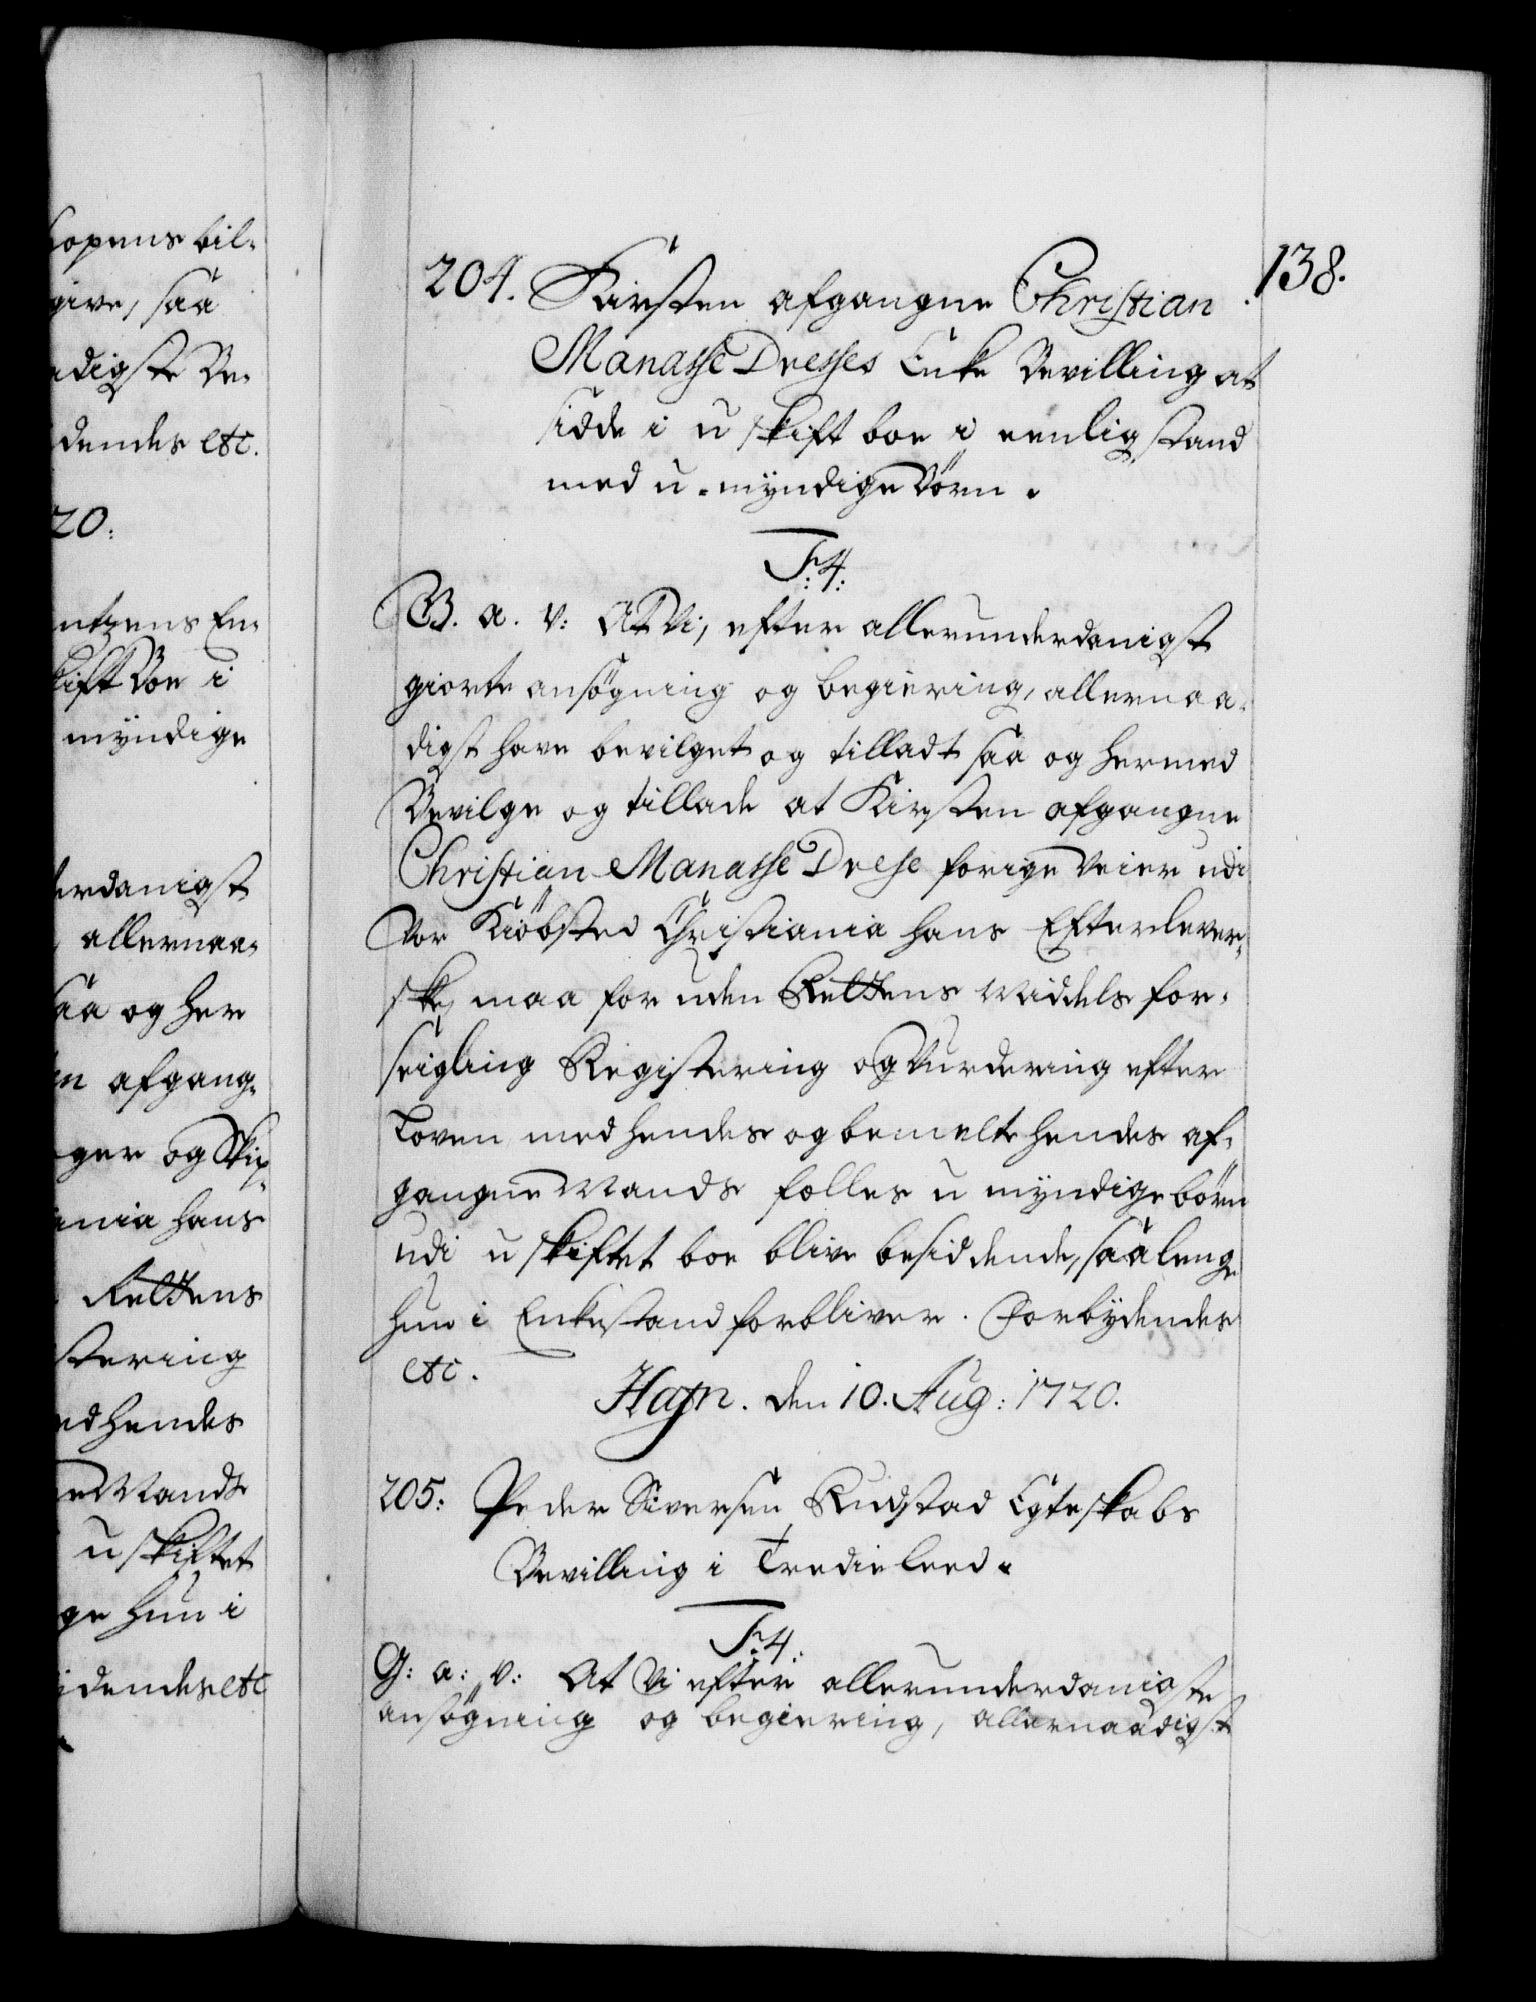 hopens bil-
give, saa
adigste Be-
dendes etc.
20:
ntzens En-
kift Boe i
myndige
derdanigst
allernaa-
saa og her
en afgang-
ger og Skip-
ania hans
Rettens
stering
ed hendes
e Mands
u skiftet
ge hun i
idendes etc
138.
204. Kirsten afgangne Christian
Manasse Dresses Enke Bevilling at
sidde i u skift boe i eenlig stand
med u-myndige Børn.
F:4:
G. a. v: At Vi, efter allerunderdanigst
giorte ansøgning og begiering, allernaa-
digst have bevilget og tilladt saa og hermed
Bevilge og tillade at Kirsten afgangne
Christian Manasse Drese forige Veier udi
Vor Kiöbsted Christiania hans Efterlever-
ske, maa for uden Rettens Middels for-
seigling Registering og Vurdering efter
Loven med hendes og bemelte hendes af-
gangne Mands fælles u myndige börn
udi u skiftet boe blive besiddende, saalenge
hun i Enkestand forbliver. Forbydendes
etc.
Hafn. den 10. Aug: 1720.
205: Peder Siversen Rudstad Egteskabs
Bevilling i Tredie Leed.
F:4:
G: a: v: At Vi efter allerunderdanigste
ansögning og begiering, allernaadigst